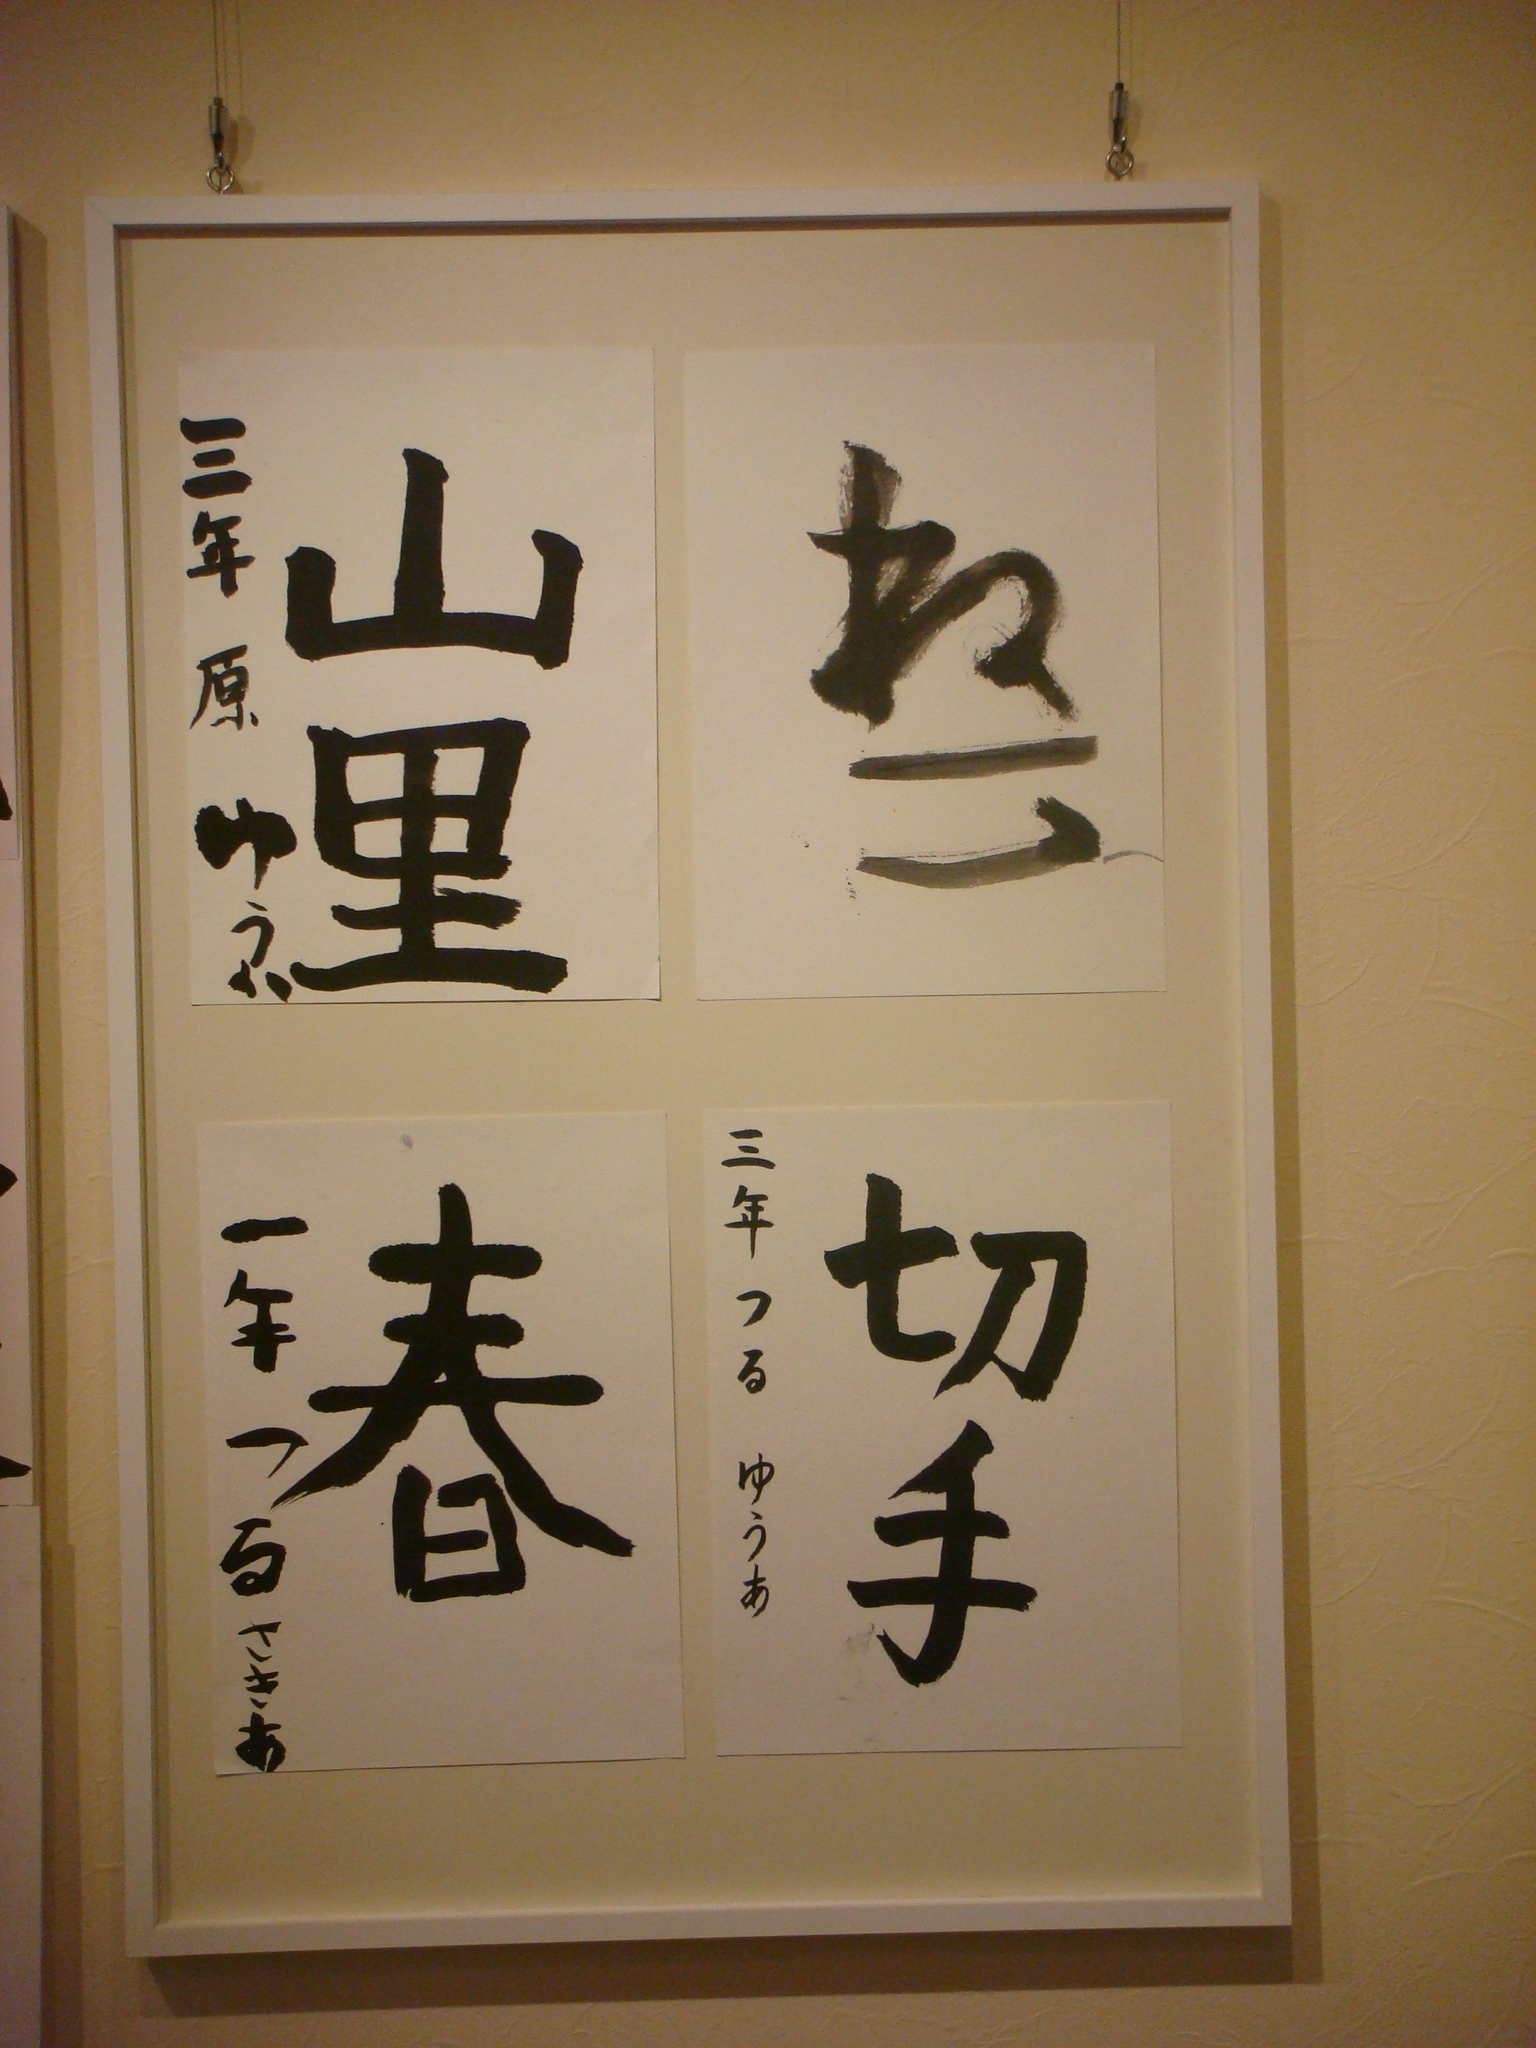 ねこ
山里
三年 原 ゆうな
切手
三年 つる ゆうあ
春
一年 つる さきあ